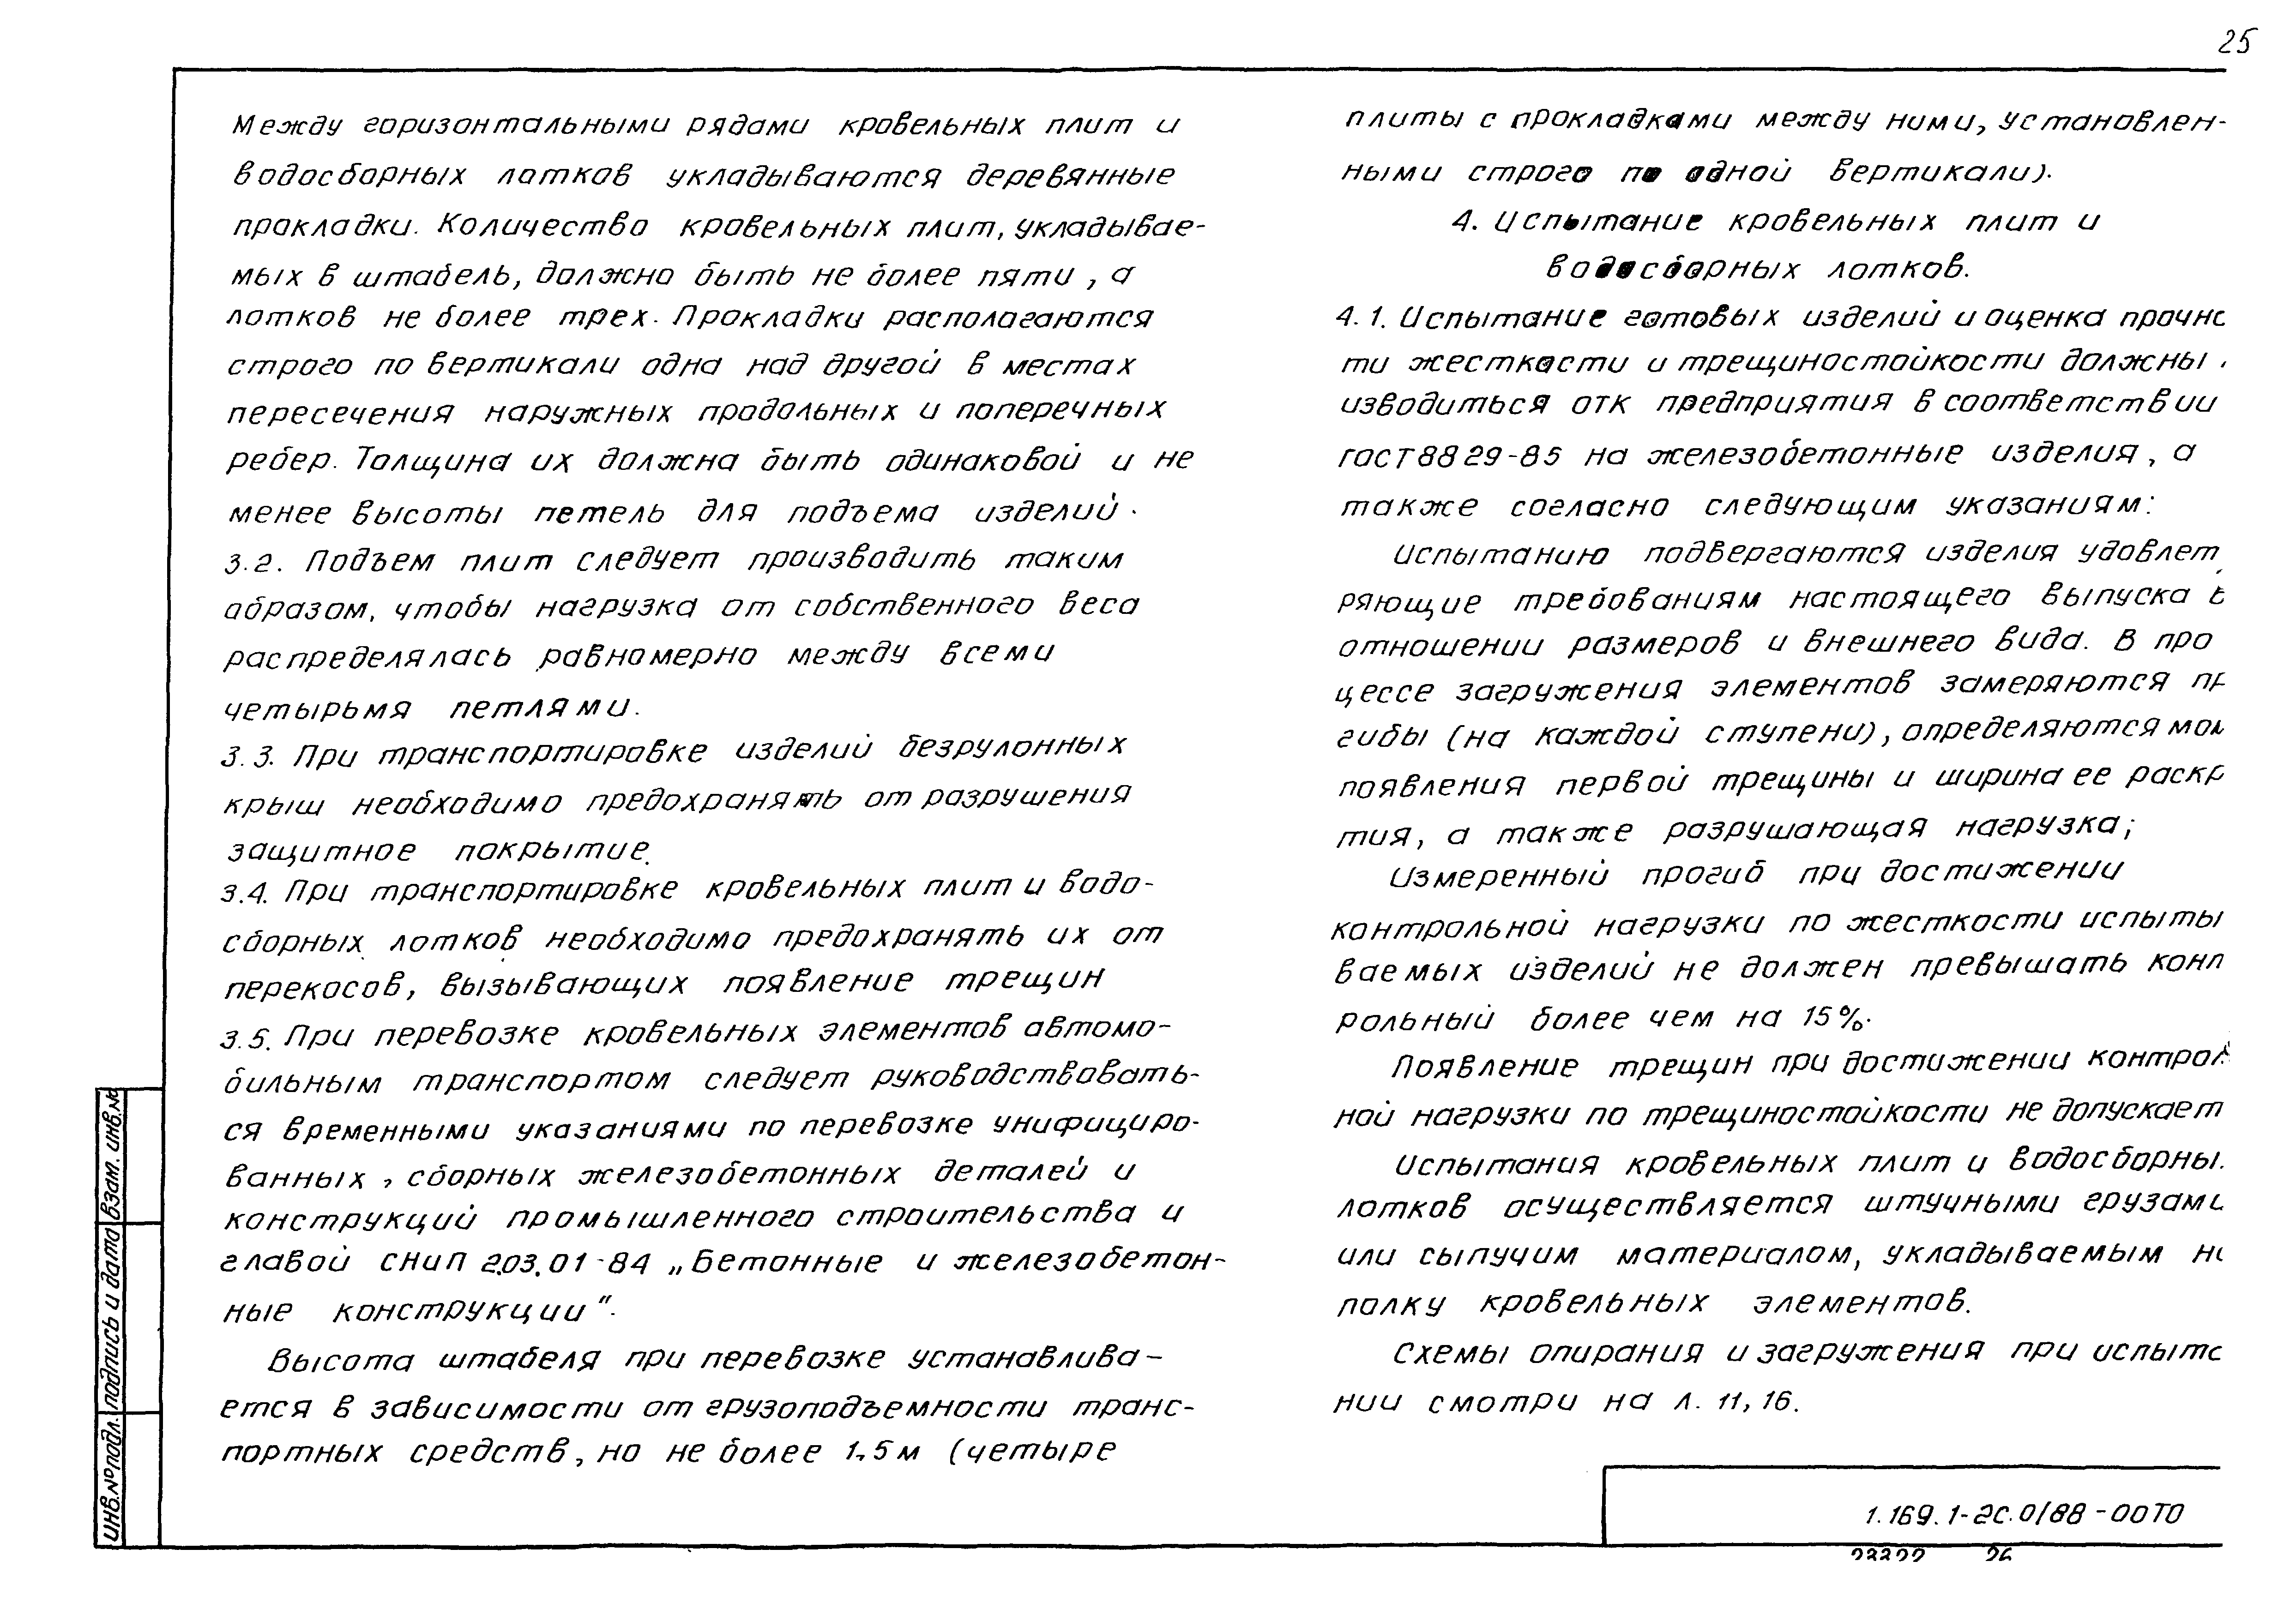 25
Между горизонтальными рядами кровельных плит и
водосборных лотков укладываются деревянные
прокладки. Количество кровельных плит, укладывае-
мых в штабель, должно быть не более пяти, а
лотков не более трех. Прокладки располагаются
строго по вертикали одна над другой в местах
пересечения наружных продольных и поперечных
ребер. Толщина их должна быть одинаковой и не
менее высоты петель для подъема изделий.
3.2. Подъем плит следует производить таким
образом, чтобы нагрузка от собственного веса
распределялась равномерно между всеми
четырьмя петлями.
3.3. При транспортировке изделий безрулонных
крыш необходимо предохранять от разрушения
защитное покрытие.
3.4. При транспортировке кровельных плит и водо-
сборных лотков необходимо предохранять их от
перекосов, вызывающих появление трещин
3.5. При перевозке кровельных элементов автомо-
бильным транспортом следует руководствовать-
ся временными указаниями по перевозке унифициро-
ванных, сборных железобетонных деталей и
конструкций промышленного строительства и
главой СНиП 2.03.01-84 „Бетонные и железобетон-
ные конструкции".
Высота штабеля при перевозке устанавлива-
ется в зависимости от грузоподъемности транс-
портных средств, но не более 1,5м (четыре
плиты с прокладками между ними, установлен-
ными строго по одной вертикали).
4. Испытание кровельных плит и
водосборных лотков.
4.1. Испытание готовых изделий и оценка прочнс
ти жесткости и трещиностойкости должны
изводиться отк предприятия в соответствии
гост 8829-85 на железобетонные изделия, а
также согласно следующим указаниям:
Испытанию подвергаются изделия удовлет
ряющие требованиям настоящего выпуска в
отношении размеров и внешнего вида. В про
цессе загружения элементов замеряются пр
гибы (на каждой ступени), определяются мом
появления первой трещины и ширина ее раскр
тия, а также разрушающая нагрузка;
Измеренный прогиб при достижении
контрольной нагрузки по жесткости испыты
ваемых изделий не должен превышать конт
рольный более чем на 15%.
Появление трещин при достижении контрол
ной нагрузки по трещиностойкости не допускает
Испытания кровельных плит и водосборны
лотков осуществляется штучными грузами
или сыпучим материалом, укладываемым на
полку кровельных элементов.
Схемы опирания и загружения при испыта
нии смотри на л. 11, 16.
Инв.№подл. Подпись и дата Взам. инв.№
1.169.1-2с.0/88-00ТО
23322 26